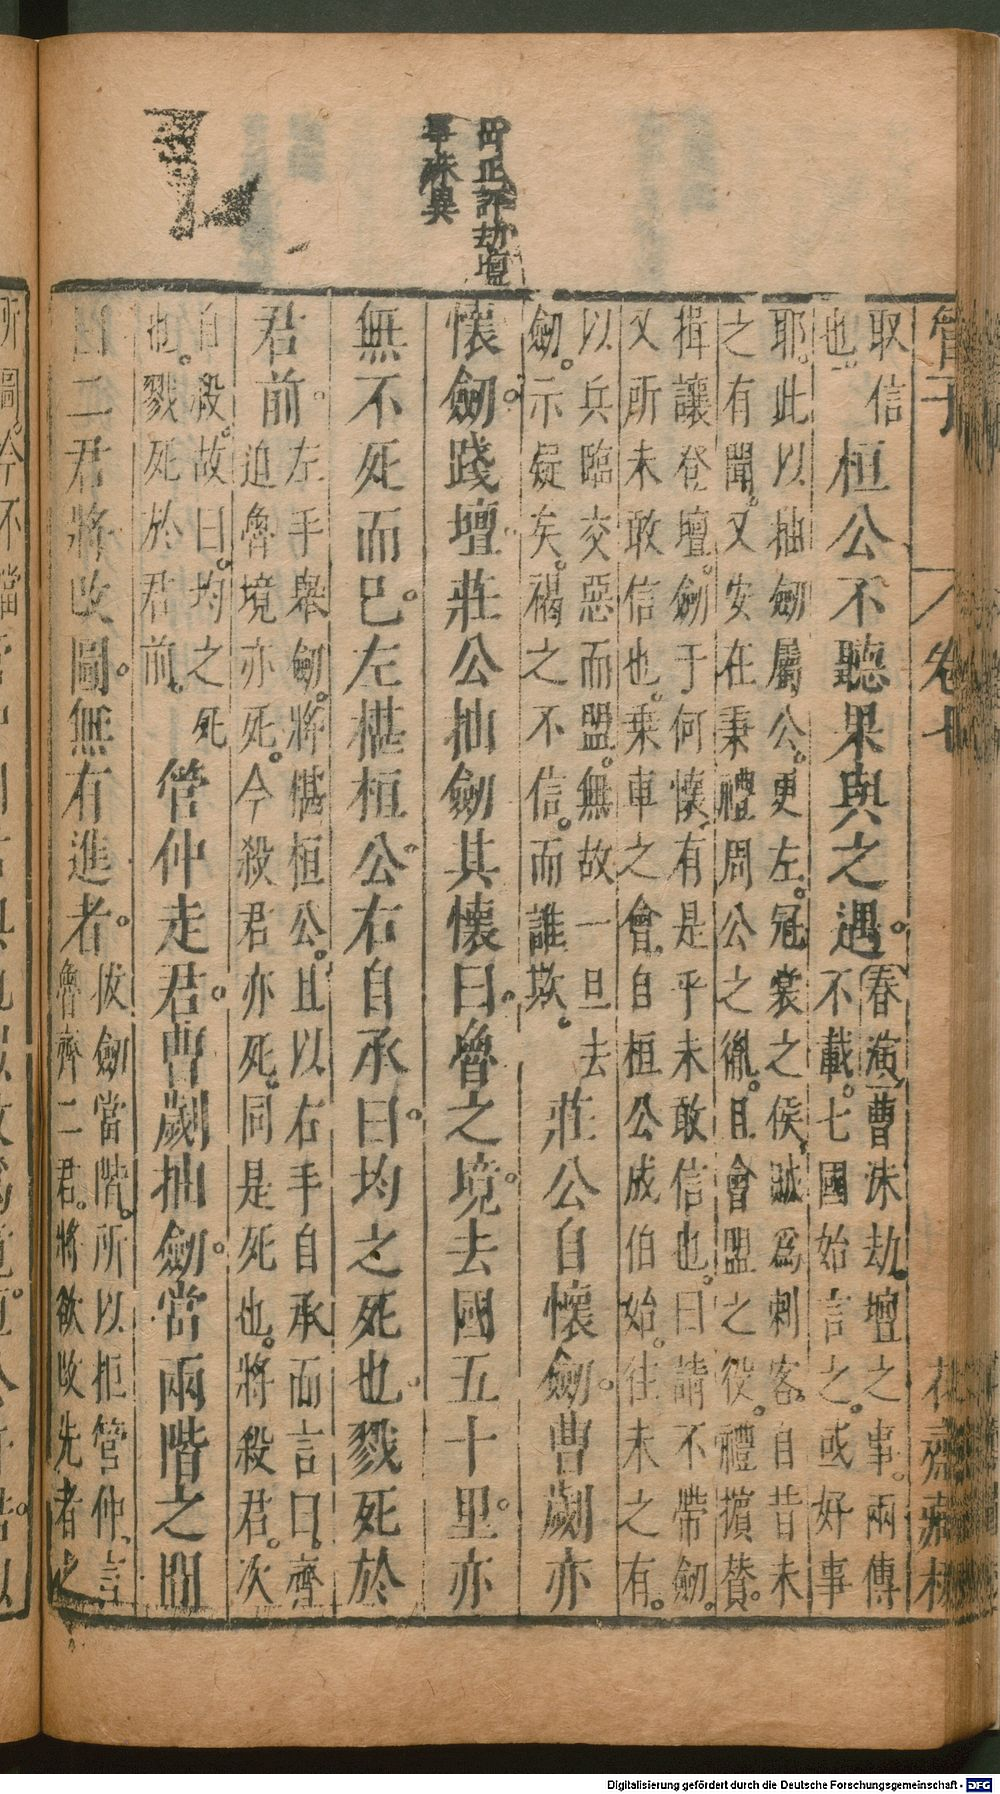 管子 卷七 花齋藏板
取信
也。
桓公不聽果與之遇。
春演 曹沫劫壇之事。兩傳
不載。七國始言之。或好事
耶。此以抽劒屬公。更左。冠裳之侯。爲刺客。自昔未
之有聞。又安在秉禮周公之胤。且會盟之役。禮擯贊。
揖讓登壇。劒于何懷。有是乎未敢信也。曰請不帶劒。
又所未敢信也。乗車之會。自桓公成伯始。往未之有。
以兵臨交惡而盟。無故一旦去
劒。示疑矣。褐之不信。而誰欺。
莊公自懷劒。曹劌亦
懷劒。踐壇。莊公抽劒其懷曰。魯之境。去國五十里。亦
無不死而已。左椹桓公。右自承曰。均之死也。戮死於
君前。
左手舉劒。將椹桓公。且以右手自承而言曰。齊
迫魯境亦死。今殺君亦死。同是死也。將殺君。次
自殺。故曰。均之死
也。戮死於君前。
管仲走君。曹劌抽劒。當兩階之間
曰二君將改圖。無有進者。
拔劒當階。所以拒管仲。言
魯齊二君。將欲改先者之
Digitalisierung gefördert durch die Deutsche Forschungsgemeinschaft - DFG